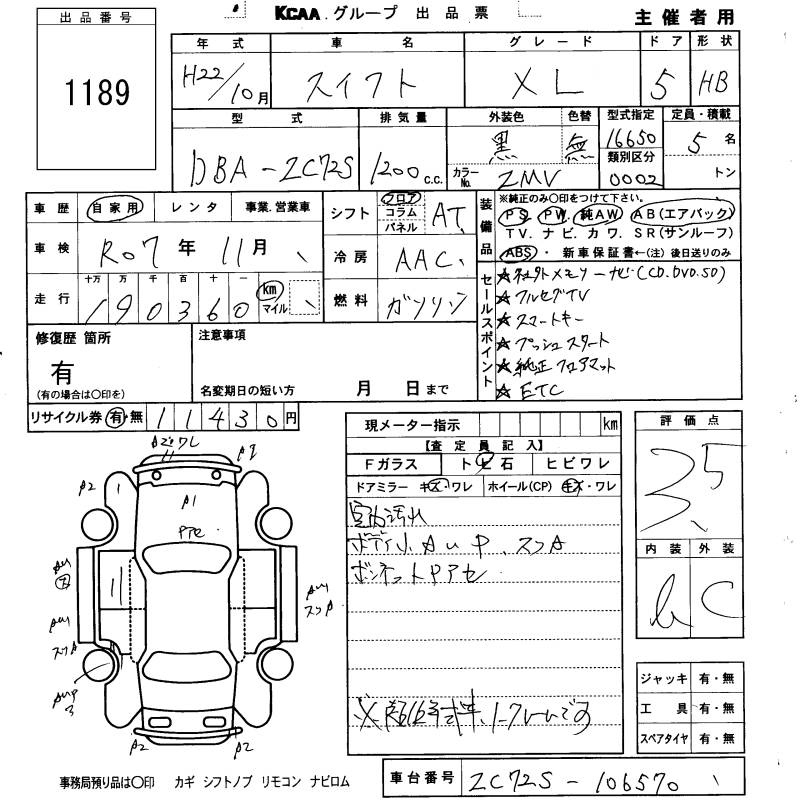 KCAA. グループ 出品票
主催者用
出品番号
1189
年式 車名 グレード ドア 形状
H22/10月 スイフト XL 5 HB
型式 排気量 外装色 色替 型式指定 定員・積載
DBA-ZC72S 1200 c.c. 黒 無 16650 5名
類別区分
カラーNo. ZMV 0002 トン
車歴 自家用 レンタ 事業.営業車
シフト フロア コラム パネル AT
車検 R07年 11月
冷房 AAC
走行 十万 万 千 百 十 一 km マイル
190360
燃料 ガソリン
装備品
※純正のみ〇印をつけて下さい。
PS. PW. 純AW. AB(エアバック)
TV. ナビ. カワ. SR(サンルーフ)
ABS・ 新車保証書←(注) 後日送りのみ
セールスポイント
★社外メモリーナビ(CD.DVD.SD)
★フルセグTV
★スマートキー
★プッシュスタート
★純正フロアマット
★ETC
修復歴 箇所
有
(有の場合は〇印を)
注意事項
名変期日の短い方 月 日まで
リサイクル券 有・無 11430円
現メーター指示 km
【査定員記入】
Fガラス トビ石 ヒビワレ
ドアミラー キズ・ワレ ホイール(CP) キズ・ワレ
室内汚れ
ボディ小AUP、スリA
評価点
3.5
内装 外装
C
A2 P1 A2
A2 A2
ジャッキ 有・無
工具 有・無
スペアタイヤ 有・無
事務局預り品は〇印 カギ シフトノブ リモコン ナビロム
車台番号 ZC72S-106570